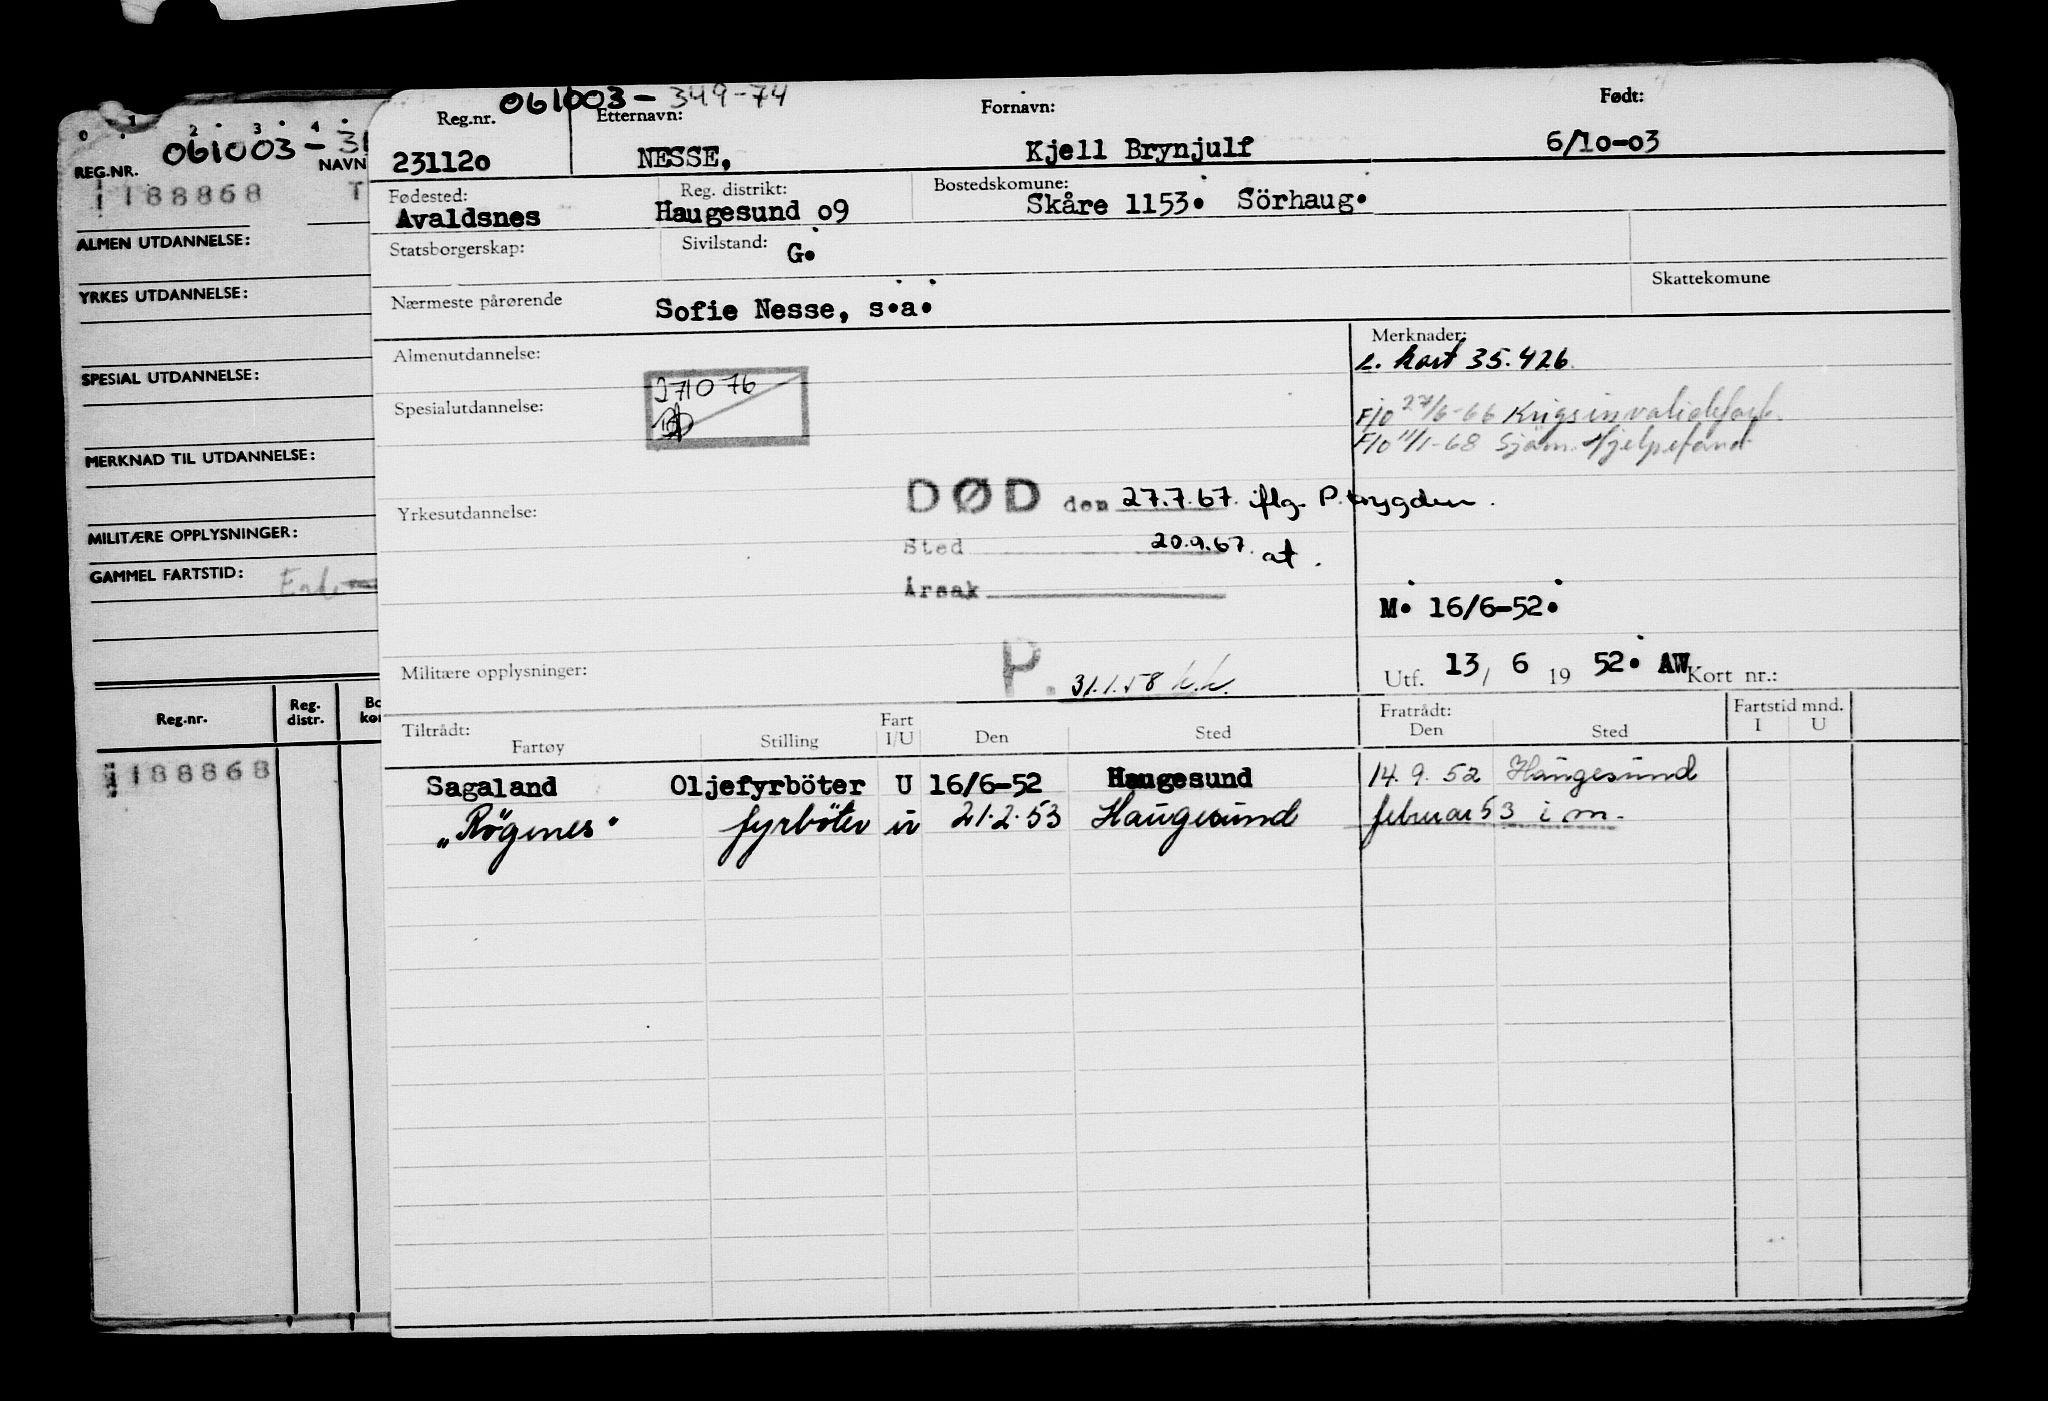 0 1 2 3 4
REG.NR. 061003-31 NAVN
188868 T
ALMEN UTDANNELSE:
YRKES UTDANNELSE:
SPESIAL UTDANNELSE:
MERKNAD TIL UTDANNELSE:
MILITÆRE OPPLYSNINGER:
GAMMEL FARTSTID:
Reg.nr. Reg. distr. Bo kor
188868
061003-349-74
Reg.nr. Etternavn: Fornavn: Født:
231120 NESSE, Kjell Brynjulf 6/10-03
Fødested: Reg. distrikt: Bostedskomune:
Avaldsnes Haugesund 09 Skåre 1153. Sörhaug.
Statsborgerskap: Sivilstand: G.
Skattekomune
Nærmeste pårørende Sofie Nesse, s.a.
Almenutdannelse: Merknader:
e. kart 35.426.
271076
Spesialutdannelse: F/o 27/6-66 Krigsinvalidesak.
F/o 11/1-68 Sjøm. Hjelpefond
DØD den 27.7.67. iflg. P.trygden.
Yrkesutdannelse:
Sted 20.9.67. at.
Årsak
M. 16/6-52.
Militære opplysninger: P. 31.1.58 k.k.
Utf. 13/ 6 19 52. AW Kort nr.:
Tiltrådt: Fratrådt: Fartstid mnd.
Fartøy Stilling Fart I/U Den Sted Den Sted I U
Sagaland Oljefyrböter U 16/6-52 Haugesund 14.9.52 Haugesund
"Rögenes" fyrböter u 21.2.53 Haugesund februar 53 i m.